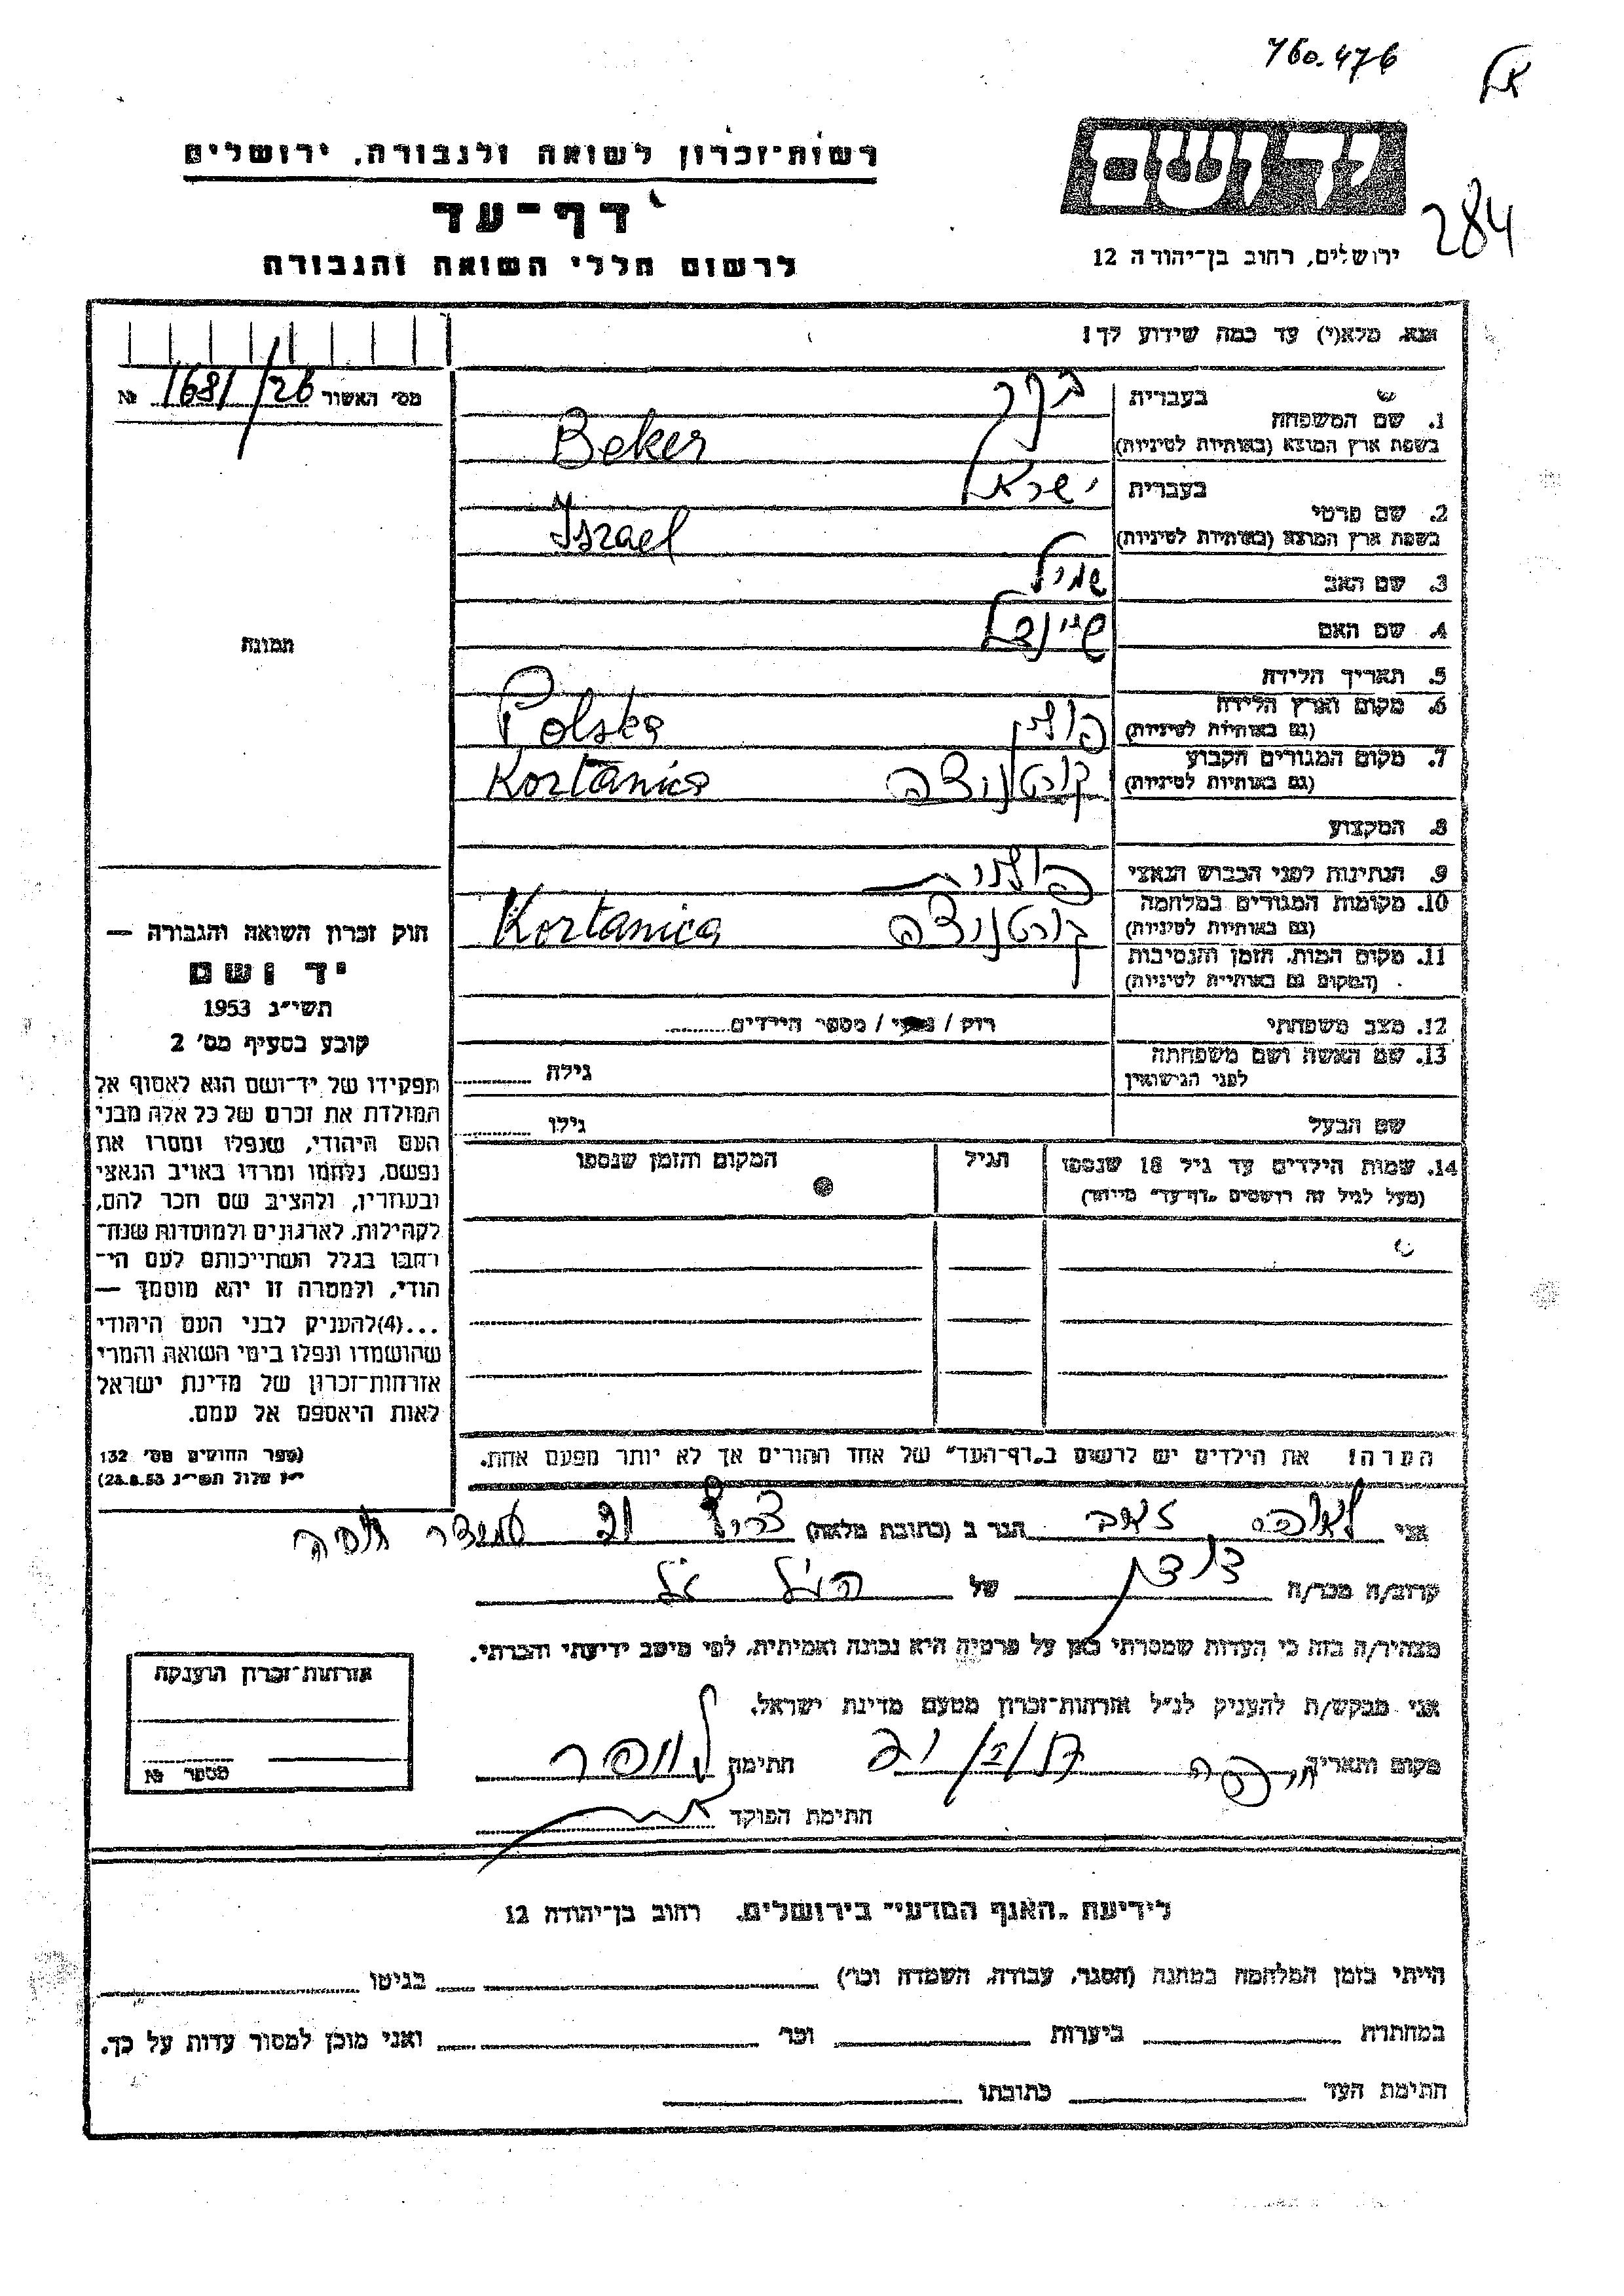 760.476
284
יד ושם
ירושלים, רחוב בן־יהודה 12
רשות־זכרון לשואה ולגבורה, ירושלים
דף־עד
לרשום חללי השואה והגבורה
אנא, מלא(י) עד כמה שידוע לך!
מס׳ האשור 1681/26 №
תמונה
בעברית בקר
1. שם המשפחה
בשפת ארץ המוצא (באותיות לטיניות) Beker
בעברית ישראל
2. שם פרטי
בשפת ארץ המוצא (באותיות לטיניות) Iszrael
3. שם האב שמיל
4. שם האם שיינדל
5. תאריך הלידה
6. מקום וארץ הלידה
(גם באותיות לטיניות) פולין Polska
7. מקום המגורים הקבוע
(גם באותיות לטיניות) קורטניצה Kortanica
8. המקצוע
9. הנתינות לפני הכבוש הנאצי פולנית
10. מקומות המגורים במלחמה
(גם באותיות לטיניות) קורטניצה Kortanica
11. מקום המות, הזמן והנסיבות
(המקום גם באותיות לטיניות)
12. מצב משפחתי רוק / נשוי / מספר הילדים
13. שם האשה ושם משפחתה
לפני הנישואין גילה
שם הבעל גילו
14. שמות הילדים עד גיל 18 שנספו הגיל המקום והזמן שנספו
(מעל לגיל זה רושמים „דף־עד״ מיוחד)
הערה! את הילדים יש לרשום ב„דף־העד״ של אחד ההורים אך לא יותר מפעם אחת.
חוק זכרון השואה והגבורה —
יד ושם
תשי״ג 1953
קובע בסעיף מס׳ 2
תפקידו של יד־ושם הוא לאסוף אל
המולדת את זכרם של כל אלה מבני
העם היהודי, שנפלו ומסרו את
נפשם, נלחמו ומרדו באויב הנאצי
ובעוזריו, ולהציב שם וזכר להם,
לקהילות, לארגונים ולמוסדות שנח־
רבו בגלל השתייכותם לעם הי־
הודי, ולמטרה זו יהא מוסמך —
...(4)להעניק לבני העם היהודי
שהושמדו ונפלו בימי השואה והמרי
אזרחות־זכרון של מדינת ישראל
לאות היאספם אל עמם.
(ספר החוקים מס׳ 132
י״ז אלול תשי״ג 28.8.53)
אני זאב הגר ב (כתובת מלאה) חיפה
קרוב/ה מכר/ה דודן של הנ״ל
מצהיר/ה בזה כי העדות שמסרתי כאן על פרטיה היא נכונה ואמיתית, לפי מיטב ידיעתי והכרתי.
אני מבקש/ת להעניק לנ״ל אזרחות־זכרון מטעם מדינת ישראל.
מקום ותאריך חיפה חתימה
חתימת הפוקד
אזרחות־זכרון הוענקה
מספר №
לידיעת „האגף המדעי״ בירושלים, רחוב בן־יהודה 12
הייתי בזמן המלחמה במחנה (הסגר, עבודה, השמדה וכו׳) בגיטו
במחתרת ביערות וכו׳ ואני מוכן למסור עדות על כך.
חתימת העד כתובתו